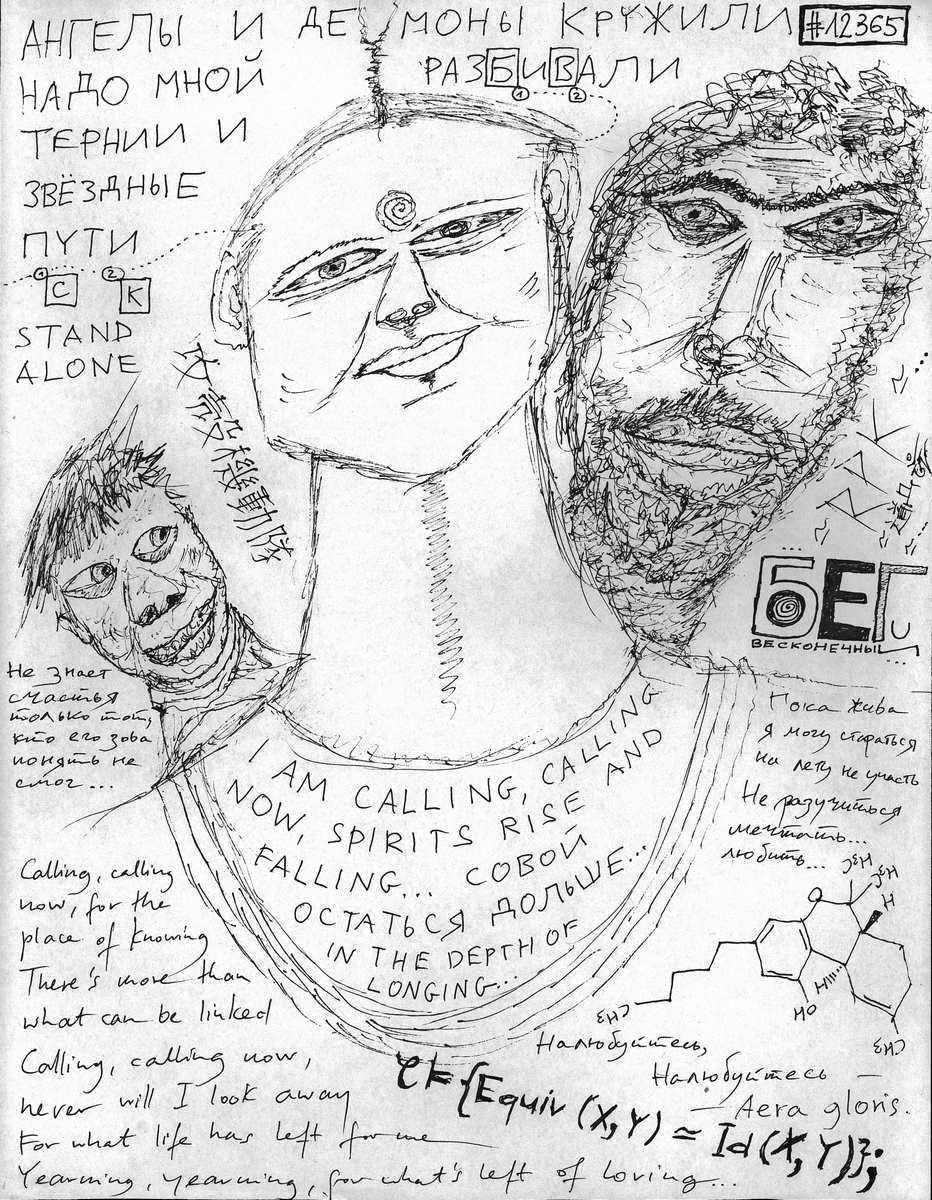 АНГЕЛЫ И ДЕМОНЫ КРУЖИЛИ
#12365
НАДО МНОЙ
РАЗБИВАЛИ
1 2
ТЕРНИИ И
ЗВЁЗДНЫЕ
ПУТИ
1 2
С К
STAND
ALONE
攻殻機動隊
БЕГ
БЕСКОНЕЧНЫЙ
Не знает
счастья
только тот,
кто его зова
понять не
смог...
Пока жива
я могу стараться
на лету не упасть
Не разучиться
мечтать...
любить...
I AM CALLING, CALLING
NOW, SPIRITS RISE AND
FALLING... СОБОЙ
ОСТАТЬСЯ ДОЛЬШЕ...
IN THE DEPTH OF
LONGING...
Calling, calling
now, for the
place of knowing
There's more than
what can be linked
Calling, calling now,
never will I look away
For what life has left for me
Yearning, yearning, for what's left of loving...
O
H3C
H3C
H
H
HO
CH3
CH3
Налюбуйтесь,
Налюбуйтесь —
— Aera gloris.
{Equiv (X,Y) ≃ Id(X,Y)};